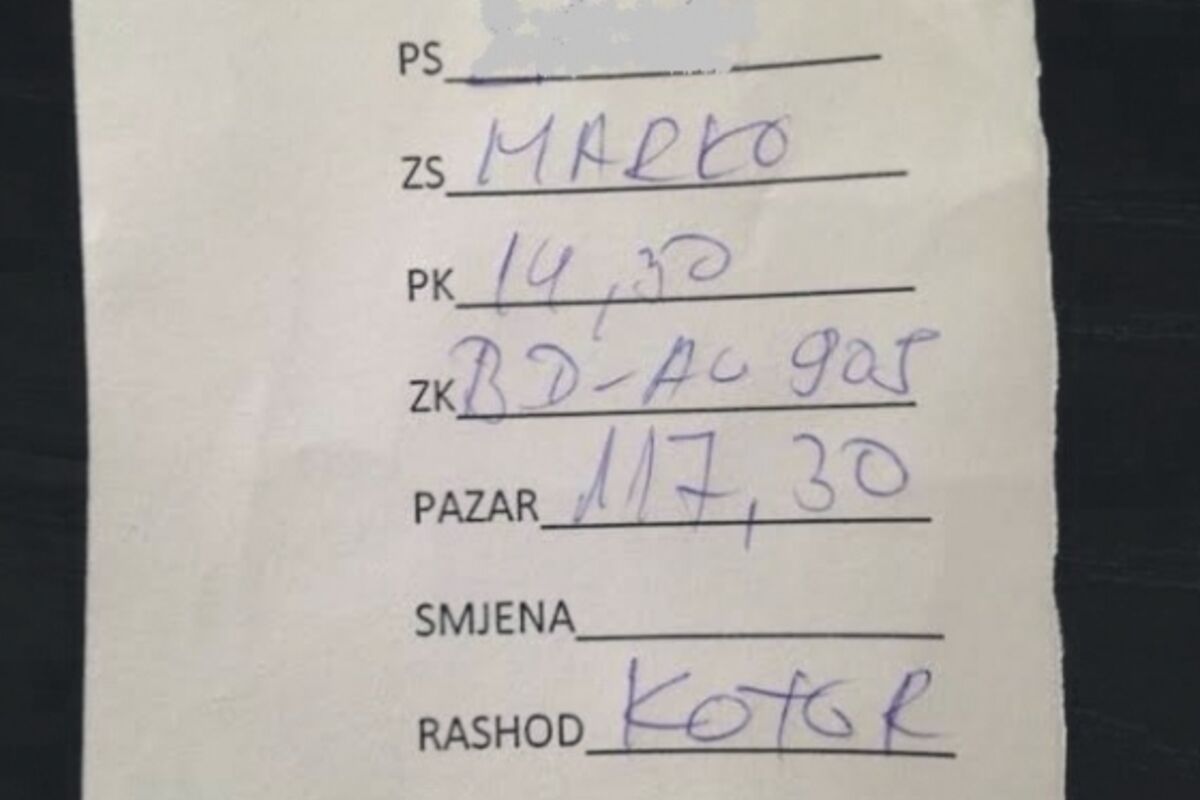 PS
ZS MARKO
PK 14,30
ZK BD-AC 905
PAZAR 117,30
SMJENA
RASHOD KOTOR